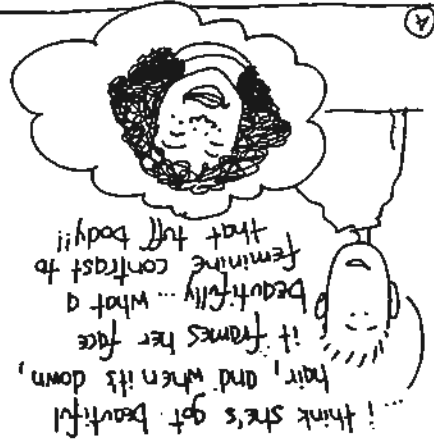 ... i think she's got beautiful
hair, and when it's down,
it frames her face
beautifully... what a
feminine contrast to
that tuff body!!
A